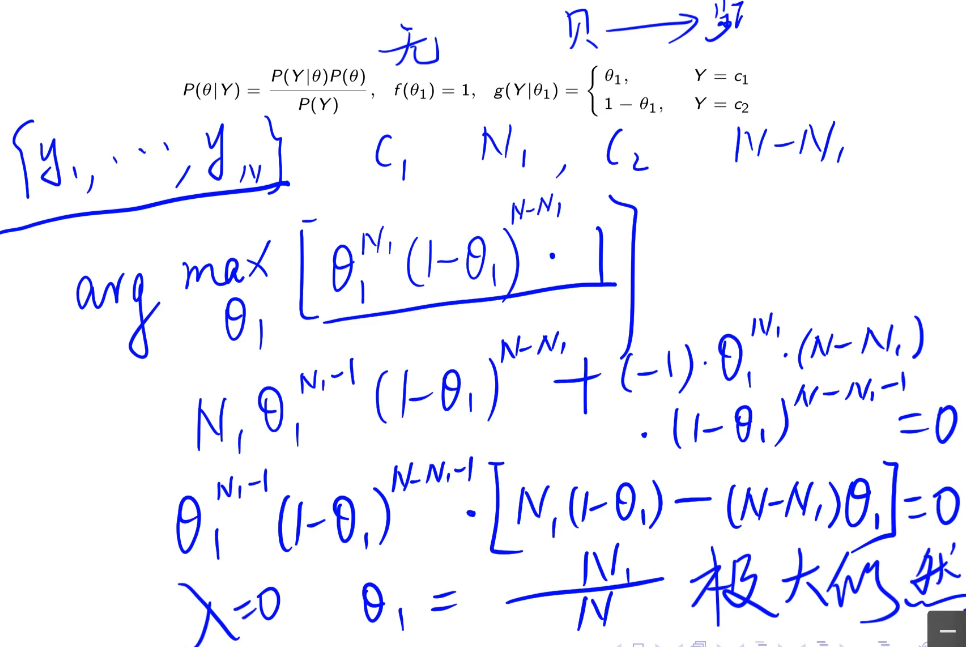 无 贝 → 频
P(θ|Y) = P(Y|θ)P(θ) / P(Y), f(θ₁) = 1, g(Y|θ₁) = { θ₁, Y = c₁
1 − θ₁, Y = c₂
{y₁, ⋯, y_N} C₁ N₁, C₂ N−N₁
arg max_θ₁ [θ₁^N₁ (1−θ₁)^(N−N₁) · 1]
N₁θ₁^(N₁−1) (1−θ₁)^(N−N₁) + (−1)·θ₁^N₁·(N−N₁)
·(1−θ₁)^(N−N₁−1) = 0
θ₁^(N₁−1) (1−θ₁)^(N−N₁−1) · [N₁(1−θ₁) − (N−N₁)θ₁] = 0
λ=0 θ₁ = N₁/N 极大似然